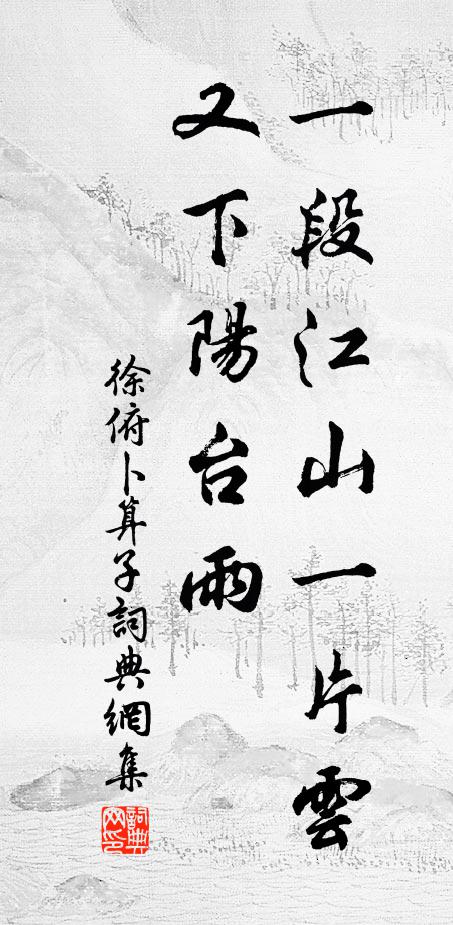 一段江山一片雲
又下陽台雨
徐俯卜算子詞典網集
詞典網印